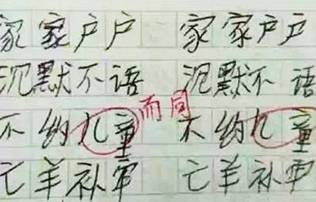 家家户户 家家户户
沉默不语 沉默不语
不约儿童 而同 不约儿童
亡羊补牢 亡羊补牢